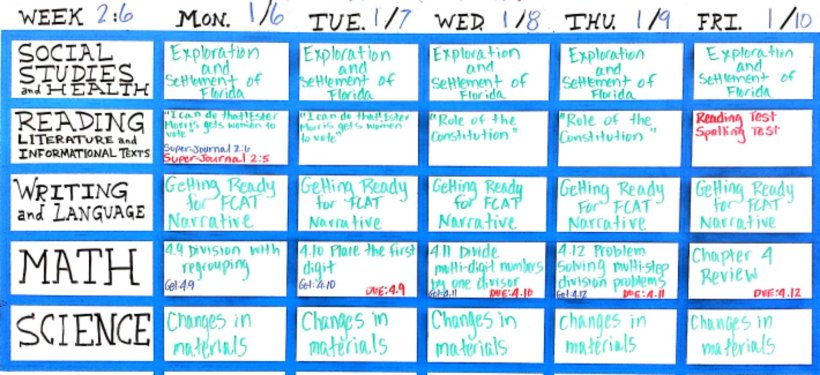 WEEK 2:6 MON. 1/6 TUE. 1/7 WED 1/8 THU. 1/9 FRI. 1/10
SOCIAL
STUDIES
and HEALTH
Exploration
and
Settlement of
Florida
Exploration
and
Settlement of
Florida
Exploration
and
Settlement of
Florida
Exploration
and
Settlement of
Florida
Exploration
and
Settlement of
Florida
READING
LITERATURE and
INFORMATIONAL TEXTS
"I can do that! Ester
Morris gets women to
vote"
Super-Journal 2:6
Super-Journal 2:5
"I can do that! Ester
Morris gets women
to vote"
"Role of the
Constitution"
"Role of the
Constitution"
Reading Test
Spelling Test
WRITING
and LANGUAGE
Getting Ready
for FCAT
Narrative
Getting Ready
for FCAT
Narrative
Getting Ready
for FCAT
Narrative
Getting Ready
for FCAT
Narrative
Getting Ready
for FCAT
Narrative
MATH
4.9 Division with
regrouping
Get:4.9
4.10 Place the first
digit
Get:4.10 DUE:4.9
4.11 Divide
multi-digit numbers
by one divisor
Get:4.11 DUE:4.10
4.12 Problem
Solving multi-step
division problems
Get:4.12 DUE:4.11
Chapter 4
Review
DUE:4.12
SCIENCE
Changes in
materials
Changes in
materials
Changes in
materials
Changes in
materials
Changes in
materials